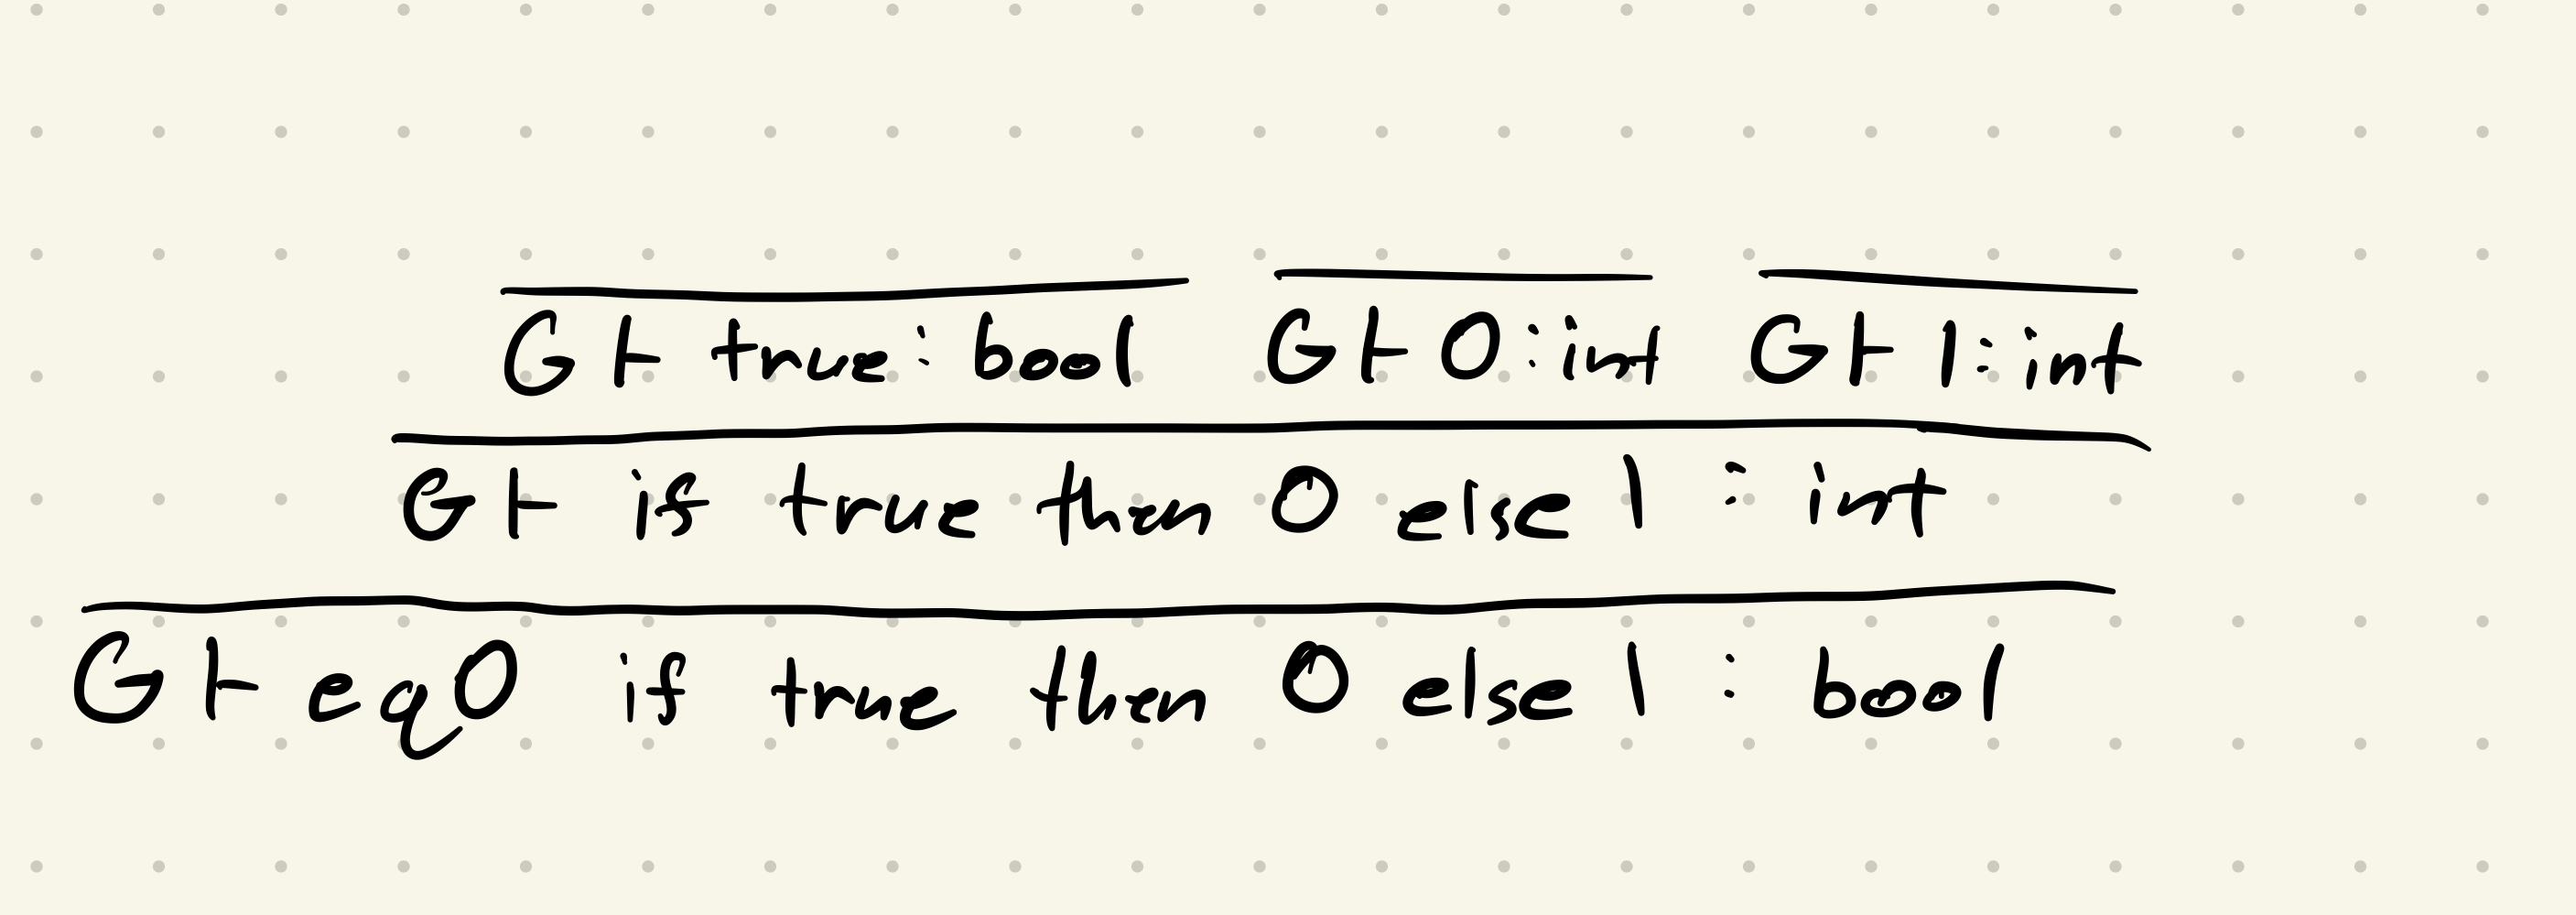 G ⊢ true : bool G ⊢ 0 : int G ⊢ 1 : int
G ⊢ if true then 0 else 1 : int
G ⊢ eq0 if true then 0 else 1 : bool